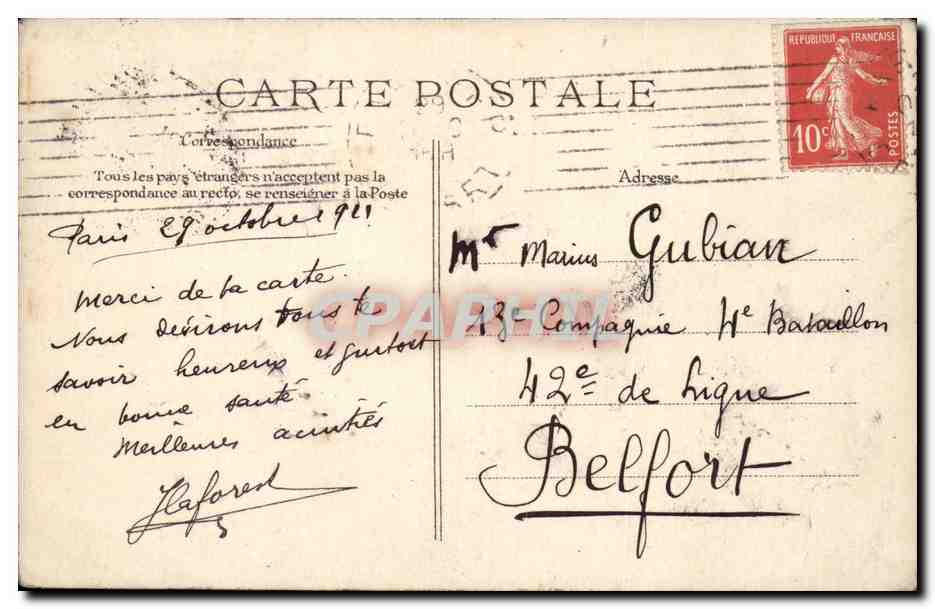 CARTE POSTALE
REPUBLIQUE FRANÇAISE
10c
POSTES
Correspondance
Tous les pays étrangers n'acceptent pas la
correspondance au recto, se renseigner à la Poste
Adresse
Paris 29 octobre 1911
Merci de ta carte.
Nous désirons tous te
savoir heureux et surtout
en bonne santé
Meilleures amitiés
Laforest
Mr Marius Gubian
13e Compagnie 4e Bataillon
42e de Ligne
Belfort
CPAPHIL